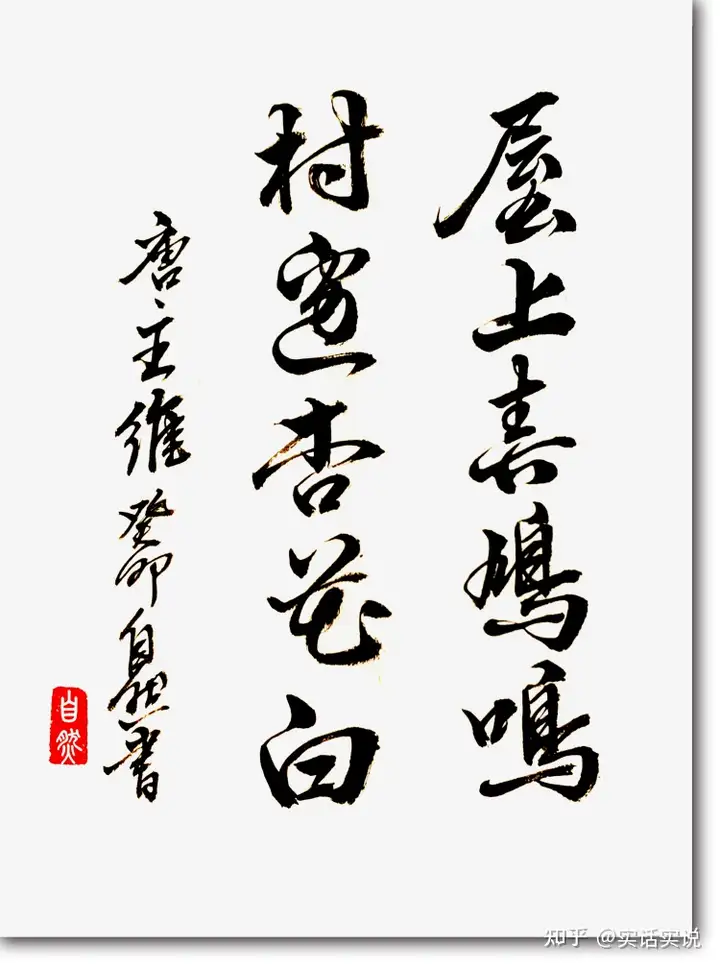 屋上春鳩鳴
村邊杏花白
唐、王維 癸卯 自然書
自然
知乎 @实话实说